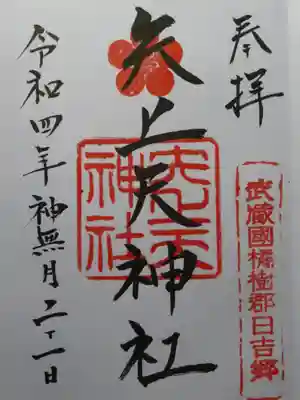 奉拝
武蔵國橘樹郡日吉郷
矢上天神社
天満神社
令和四年神無月二十一日